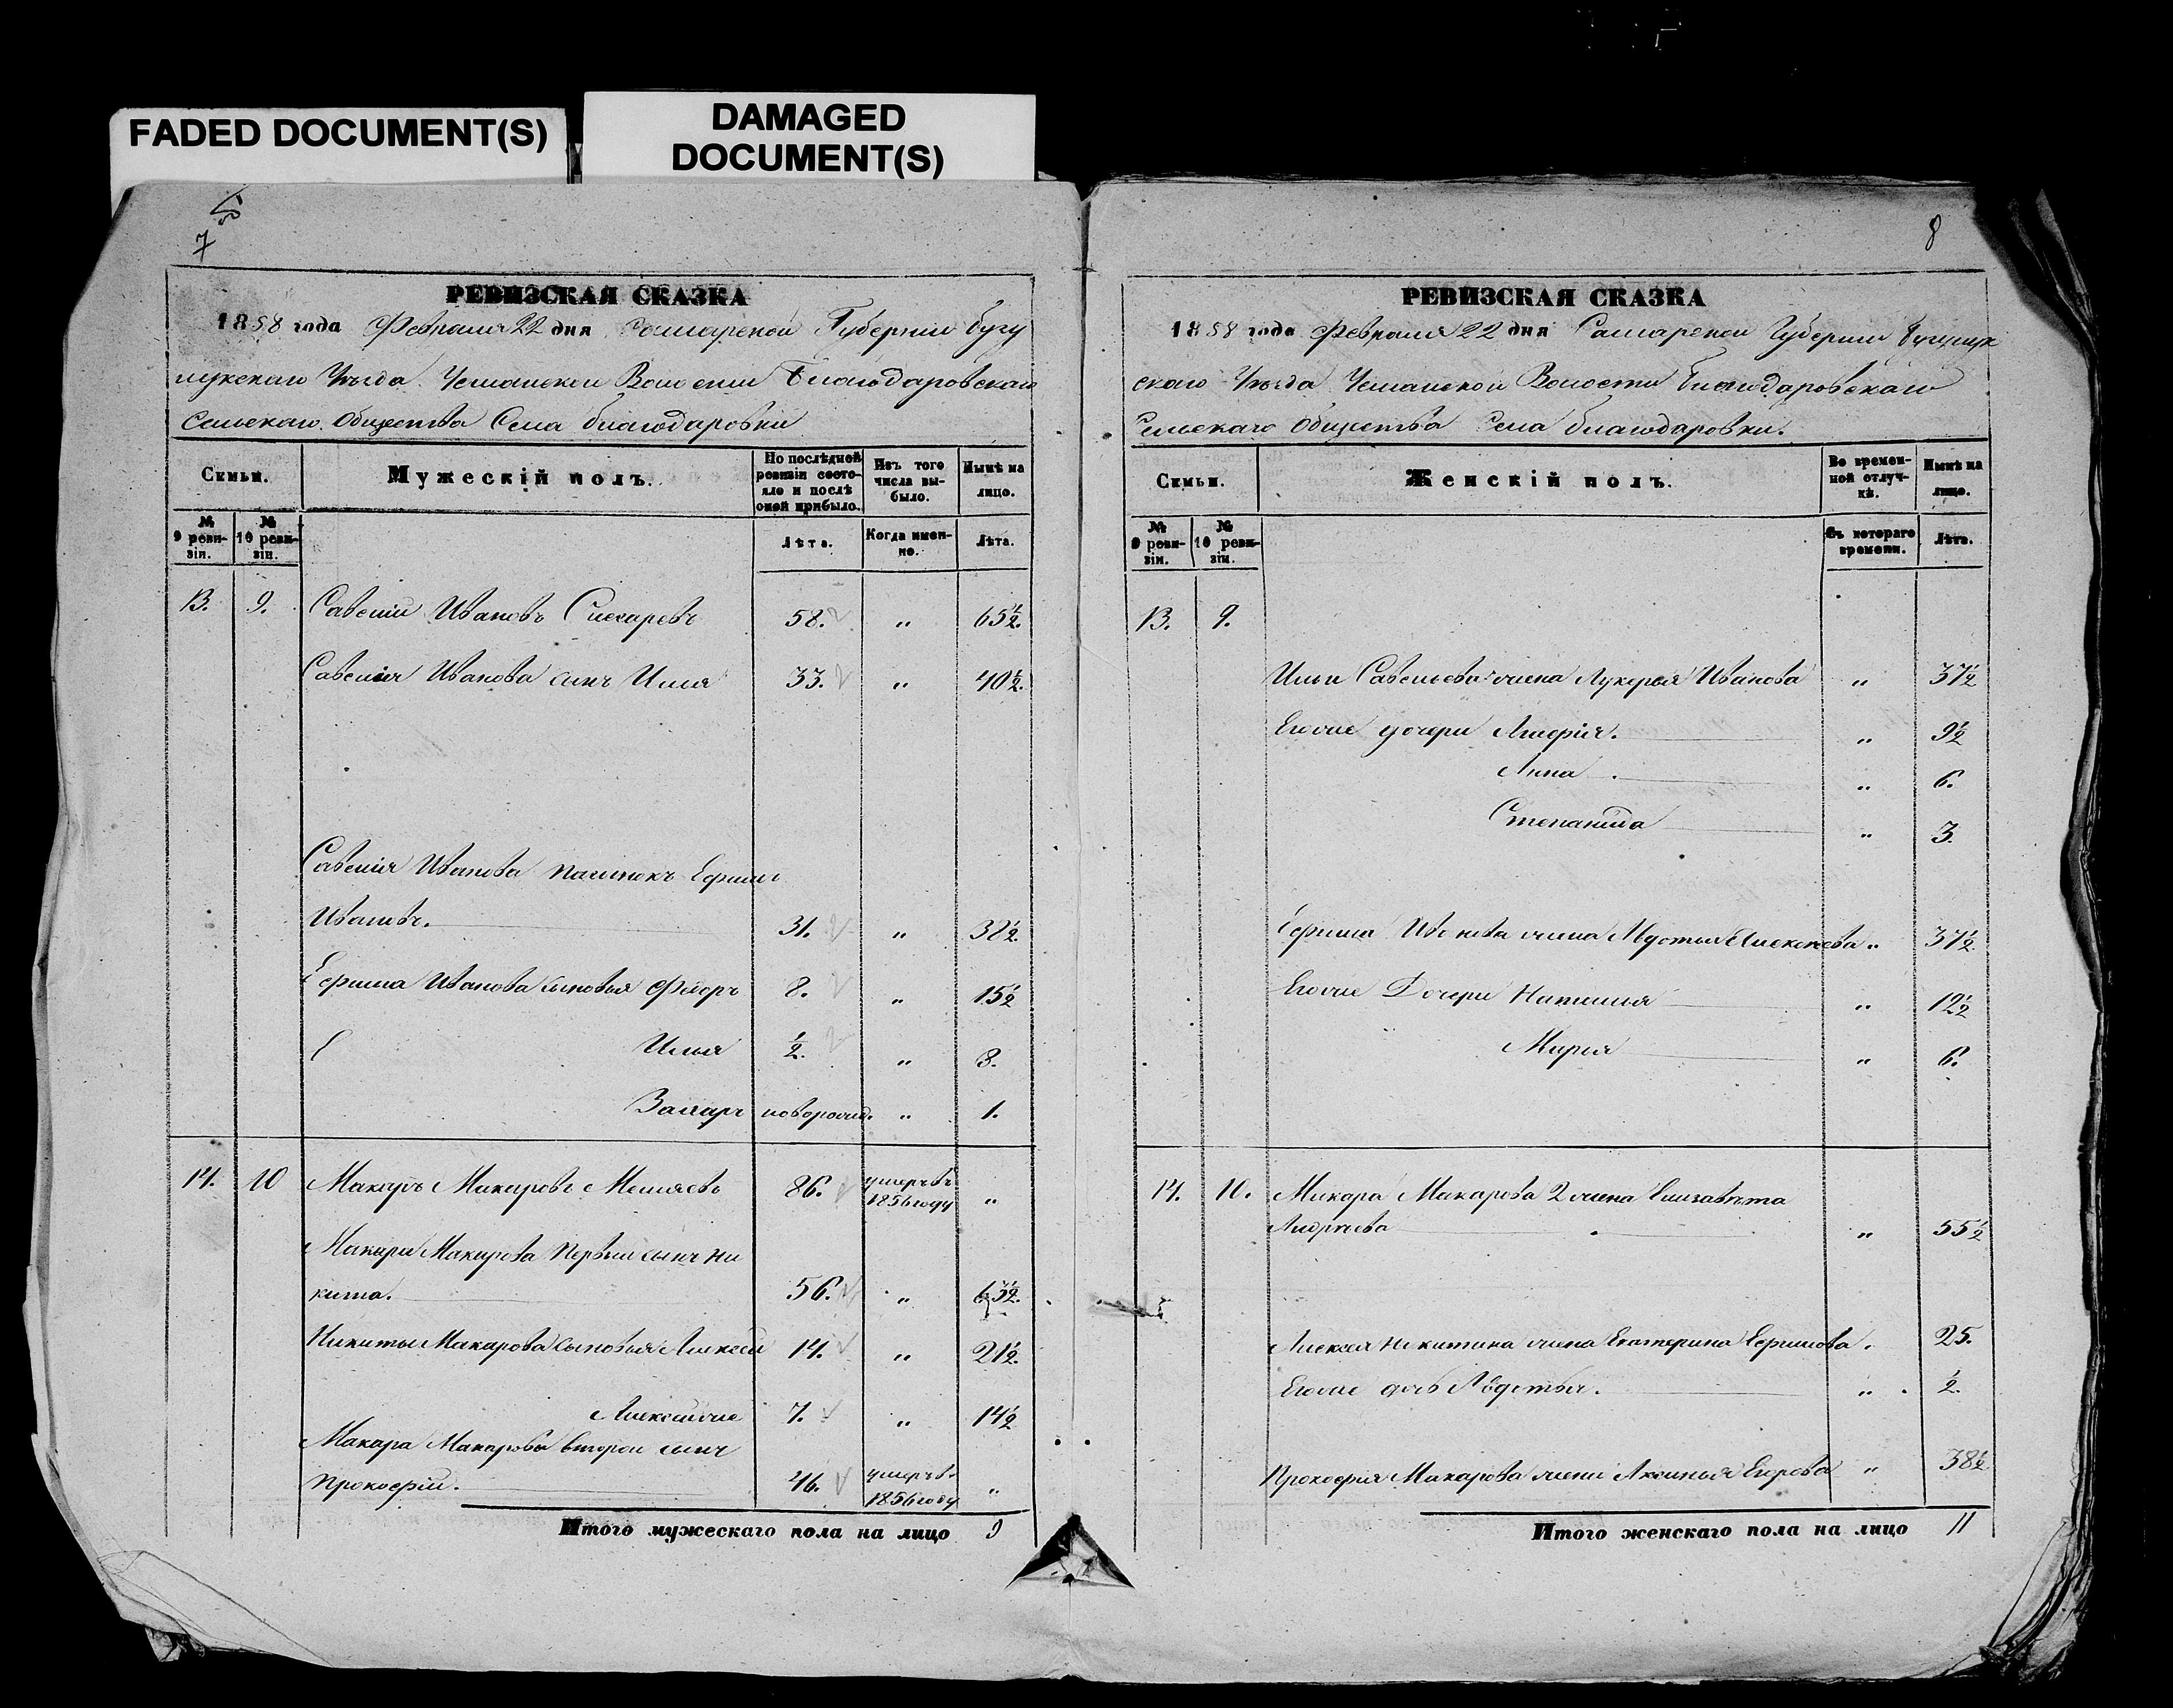 FADED DOCUMENT(S)
DAMAGED
DOCUMENT(S)
7
РЕВИЗСКАЯ СКАЗКА
1858 года Февраля 22 дня Самарской Губернии Бугу
Уѣзда Волости Благодаровскаго
Сельскаго Общества Села Благодаровки
Семьи.
Мужескій полъ.
По послѣдней
ревизіи состо-
яло и послѣ
оной прибыло.
Изъ того
числа вы-
было.
Нынѣ на
лицо.
№
9 реви-
зіи.
№
10 реви-
зіи.
Лѣта.
Когда имен-
но.
Лѣта.
13. 9. Савелій Ивановъ 58. „ 65½.
Савелія Иванова сынъ Илья 33. „ 40½.
Савелія Иванова пасынокъ Ефимъ
Ивановъ. 31. „ 38½.
Ефима Иванова сыновья Федоръ 8. „ 15½
Илья ½. „ 8.
Захаръ новорожд. „ 1.
14. 10 Макаръ Макаровъ 86. умеръ въ
1856 году „
Макара Макарова Первый сынъ Ни
кита. 56. „ 63½.
Никиты Макарова сыновья Алексей 14. „ 21½.
Алексей же 7. „ 14½
Макара Макарова второй сынъ
Прокофій. 46. умеръ въ
1856 году „
Итого мужескаго пола на лицо 9
8
РЕВИЗСКАЯ СКАЗКА
1858 года Февраля 22 дня Самарской Губернии
скаго Уѣзда Волости Благодаровскаго
Сельскаго Общества Села Благодаровки.
Семьи.
Женскій полъ.
Во времен-
ной отлуч-
кѣ.
Нынѣ на
лицо.
№
9 реви-
зіи.
№
10 реви-
зіи.
Съ котораго
времени.
Лѣта.
13. 9.
Ильи Савельева жена Лукерья Иванова „ 37½
Егоже дочери „ 9½
Анна „ 6.
Степанида „ 3.
Ефима Иванова жена Алексеева „ 37½.
Егоже Дочери Наталья „ 12½
Марья „ 6.
14. 10. Макара Макарова 2 жена Елизавѣта
Андреева „ 55½
Алексея Никитина жена Екатерина Ефимова „ 25.
Егоже дочь Авдотья. „ ½.
Прокофія Макарова жена Аксинья Егорова „ 38½
Итого женскаго пола на лицо 11